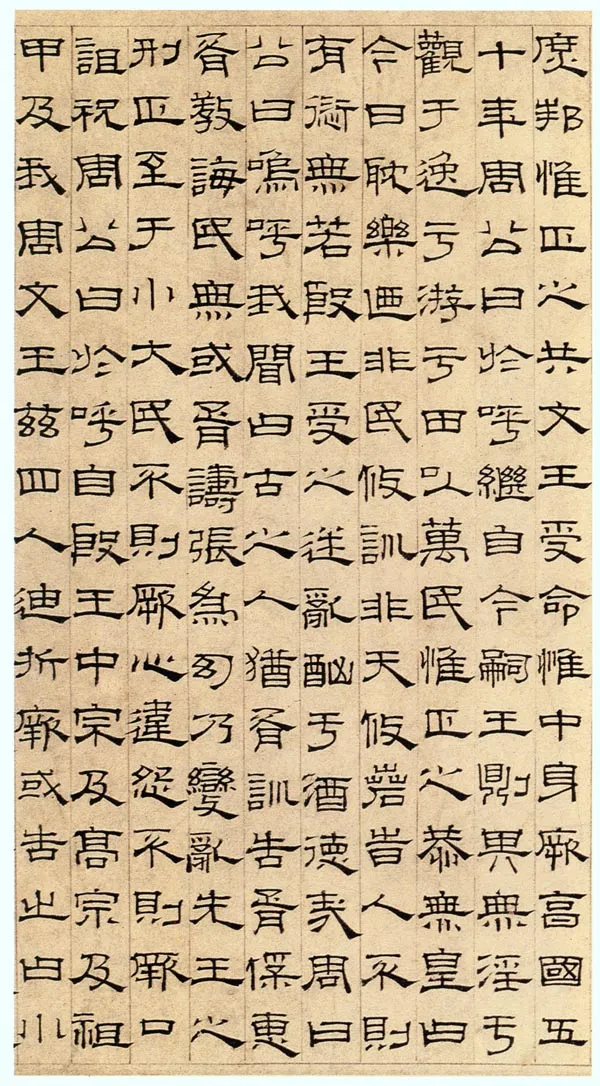 庶邦惟正之共文王受命惟中身厥享國五
十年周公曰於呼繼自今嗣王則其無淫于
觀于逸于游于田以萬民惟正之恭無皇曰
今日耽樂廼非民攸訓非天攸若旹人不則
有愆無若殷王受之迷亂酗于酒德哉周曰
公曰嗚呼我聞曰古之人猶胥訓告胥保惠
胥教誨民無或胥譸張為幻乃變亂先王之
刑正至于小大民不則厥心違怨不則厥口
詛祝周公曰於呼自殷王中宗及高宗及祖
甲及我周文王茲四人迪折厥或告之曰小